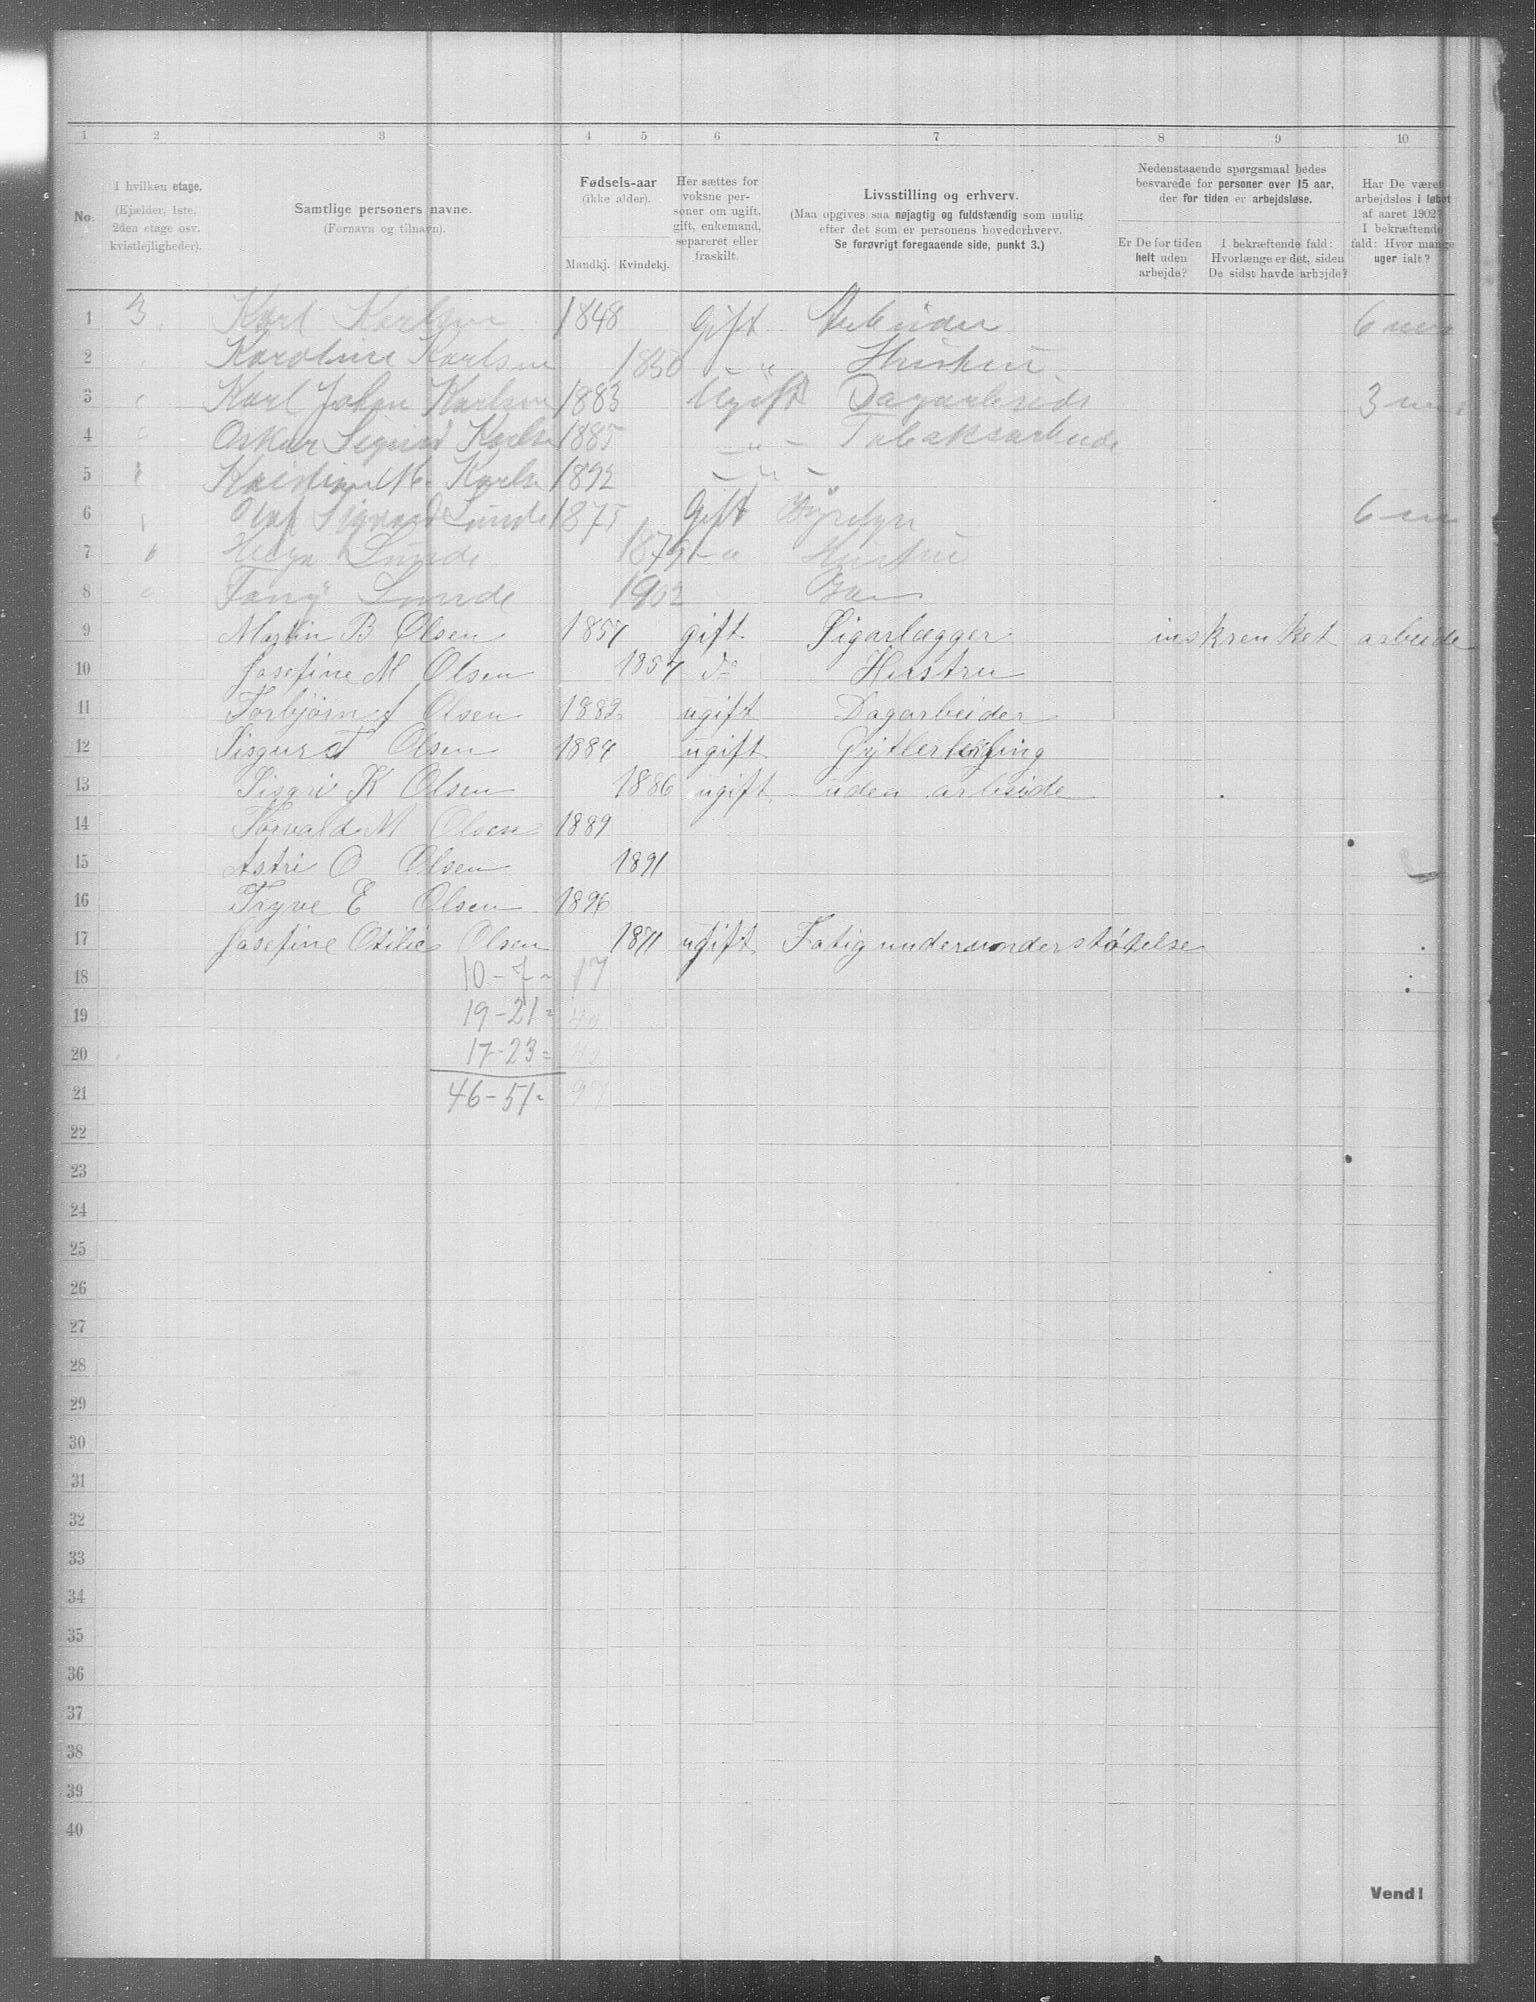 1 2 3 4 5 6 7 8 9 10
No.
I hvilken etage.
(Kjælder, 1ste,
2den etage osv.
kvistlejligheder).
Samtlige personers navne.
(Fornavn og tilnavn).
Fødsels-aar
(ikke alder).
Mandkj. Kvindekj.
Her sættes for
voksne per-
soner om ugift,
gift, enkemand,
separeret eller
fraskilt.
Livsstilling og erhverv.
(Maa opgives saa nøjagtig og fuldstændig som mulig
efter det som er personens hovederhverv.
Se forøvrigt foregaaende side, punkt 3.)
Nedenstaaende spørgsmaal bedes
besvarede for personer over 15 aar,
der for tiden er arbejdsløse.
Er De for tiden
helt uden
arbejde?
I bekræftende fald:
Hvorlænge er det, siden
De sidst havde arbejde?
Har De været
arbejdsløs i løbet
af aaret 1902?
I bekræftende
fald: Hvor mange
uger ialt?
1 3. Karl Karlsen 1848 Gift Arbeider 6
2 Karoline Karlsen 1850 - " Hustru
3 Karl Johan Karlsen 1883 Ugift Dagarbeide 3
4 Oskar Sigvard Karlse 1885 - " - Tobaksarbeide
5 Kristian M. Karlse 1892 - " -
6 Olaf Sigvard Lunde 1875 Gift 6
7 Helga Lunde 1879 - " Hustru
8 Fany Lunde 1902 Barn
9 Martin B Olsen 1857 gift Sigarlægger inskrenket arbeide
10 Josefine M Olsen 1857 do Hustru
11 Torbjørn J Olsen 1882 ugift Dagarbeider
12 Sisgur T Olsen 1884 ugift Gjytlerlærling
13 Sisgri K Olsen 1886 ugift uden arbeide
14 Torvald M Olsen 1889
15 Astri O Olsen 1891
16 Tryve E Olsen 1896
17 Josefine Otilie Olsen 1871 ugift Fatigunderunderstøtelse
18 10 - 7 = 17
19 19 - 21 = 40
20 17 - 23 = 40
21 46 - 51 = 97
22
23
24
25
26
27
28
29
30
31
32
33
34
35
36
37
38
39
40
Vend!